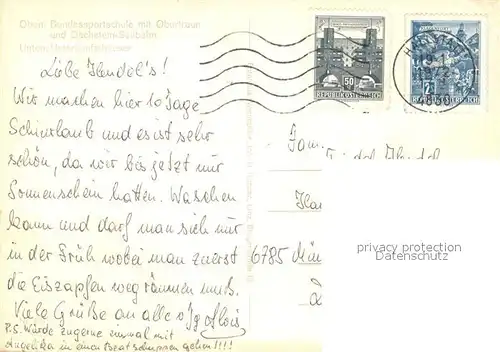 Oben: Bundessportschule mit Obertraun
und Dachstein-Seilbahn
Unten:
Liebe Hendol's!
Wir machen hier 10 Tage
Schiurlaub und es ist sehr
schön, da wir bis jetzt nur
Sonnenschein hatten. Waschen
kann und darf man sich nur
in der Früh wobei man zuerst
die Eiszapfen wegräumen muß.
Viele Grüße an alle Alois
P.S. Würde zugerne einmal mit
Angelika in einen gehen!!!!
50
REPUBLIK ÖSTERREICH
REPUBLIK ÖSTERREICH
4830
Fam.
6785
privacy protection
Datenschutz